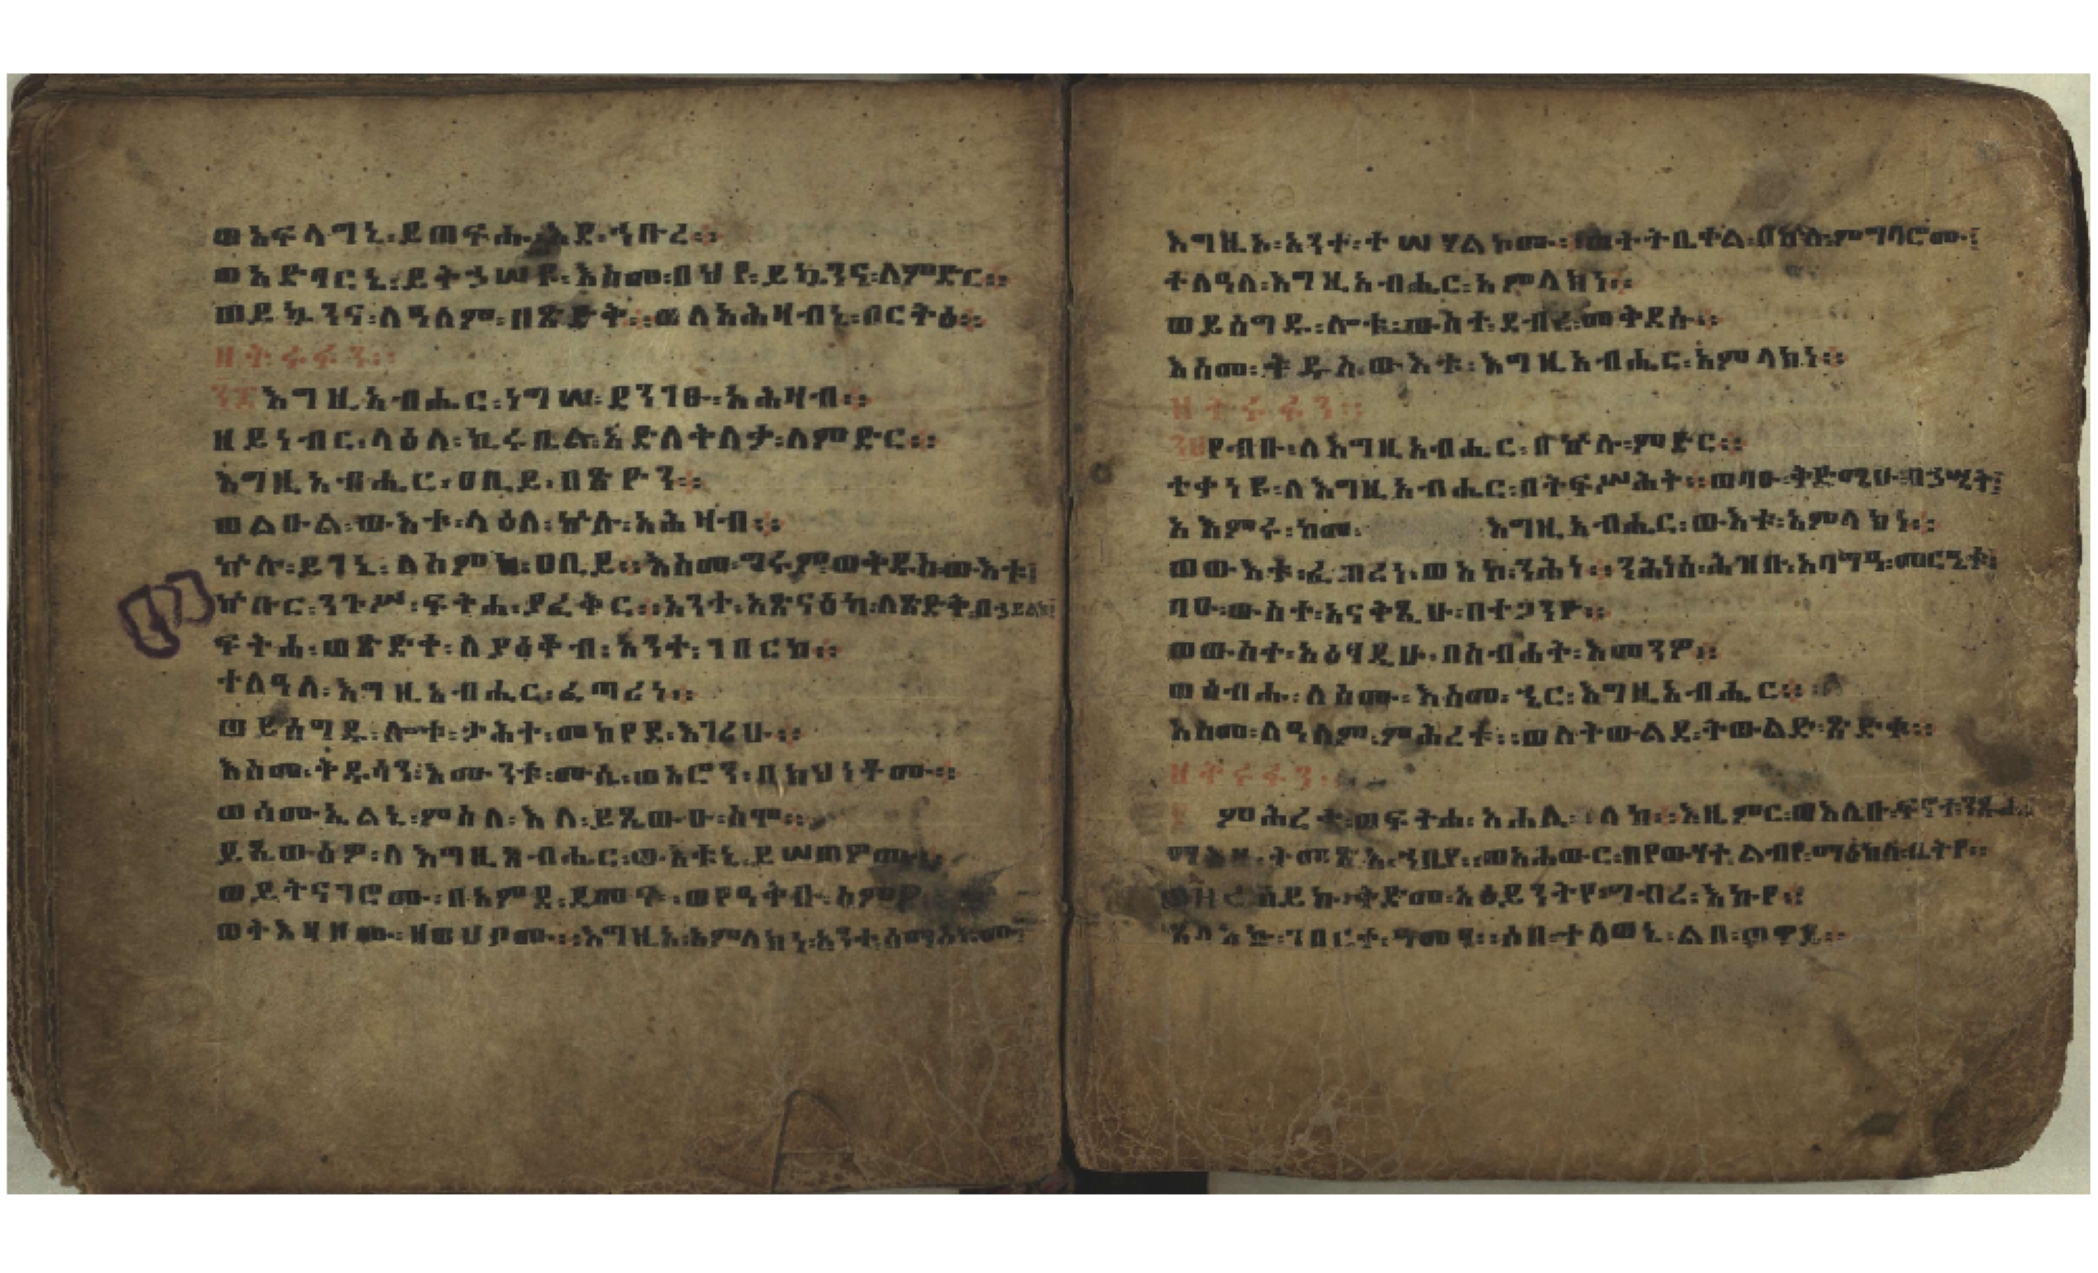 ወአፍላግኒ፡ይጠፍሑ፡እደ፡ኅቡረ።
ወአድባርኒ፡ይትኃሠዩ፡እስመ፡በህየ፡ይኴንና፡ለምድር።
ወይኴንና፡ለዓለም፡በጽድቅ።ወለአሕዛብኒ፡በርትዕ።
ዘትሩፋን።
እግዚአብሔር፡ነግሠ፡ደንገፁ፡አሕዛብ።
ዘይነብር፡ላዕለ፡ኪሩቤል፡አድለቅለቃ፡ለምድር።
እግዚአብሔር፡ዐቢይ፡በጽዮን።
ወልዑል፡ውእቱ፡ላዕለ፡ኵሉ፡አሕዛብ።
ኵሉ፡ይገኒ፡ለስምከ፡ዐቢይ።እስመ፡ግሩም፡ወቅዱስ፡ውእቱ፤
ክቡር፡ንጉሥ፡ፍትሐ፡ያፈቅር።አንተ፡አጽናዕካ፡ለጽድቅ፡በኃይልከ፤
ፍትሐ፡ወጽድቀ፡ለያዕቆብ፡አንተ፡ገበርከ።
ተለዓለ፡እግዚአብሔር፡ፈጣሪነ።
ወይሰግዱ፡ሎቱ፡ታሕተ፡መከየደ፡እገሪሁ።
እስመ፡ቅዱሳን፡እሙንቱ፡ሙሴ፡ወአሮን፡በክህነቶሙ።
ወሳሙኤልኒ፡ምስለ፡እለ፡ይጼውዑ፡ስሞ።
ይጼውዕዎ፡ለእግዚአብሔር፡ውእቱኒ፡ይሠጠዎሙ።
ወይትናገሮሙ፡በዓምደ፡ደመና፡ወየዓቅቡ፡ስምዖ።
ወትእዛዞሙ፡ዘወሀቦሙ።እግዚኦ፡አምላክነ፡አንተ፡ሰማዕኮሙ፤
እግዚኦ፡አንተ፡ተሣሃልኮሙ።ወትትቤቀል፡በኵሉ፡ምግባሮሙ፤
ተለዓለ፡እግዚአብሔር፡አምላክነ።
ወይሰግዱ፡ሎቱ፡ውስተ፡ደብረ፡መቅደሱ።
እስመ፡ቅዱስ፡ውእቱ፡እግዚአብሔር፡አምላክነ።
ዘትሩፋን።
የብቡ፡ለእግዚአብሔር፡በኵሉ፡ምድር።
ተቀነዩ፡ለእግዚአብሔር፡በትፍሥሕት።ወባዑ፡ቅድሜሁ፡በኃሤት፤
አእምሩ፡ከመ፡እግዚአብሔር፡ውእቱ፡አምላክነ።
ወውእቱ፡ፈጠረነ፡ወአኮ፡ንሕነ።ንሕነሰ፡ሕዝቡ፡አባግዓ፡መርዔቱ፤
ባዑ፡ውስተ፡አናቅጺሁ፡በተጋንዮ።
ወውስተ፡አዕፃዲሁ፡በስብሐት፡እመንዎ።
ወሰብሑ፡ለስሙ፡እስመ፡ኄር፡እግዚአብሔር።
እስመ፡ለዓለም፡ምሕረቱ።ወለትውልደ፡ትውልድ፡ጽድቁ።
ዘትሩፋን።
ምሕረተ፡ወፍትሐ፡አሐሊ፡ለከ።እዜምር፡ወእሌቡ፡ፍኖተ፡ንጹሕ፡
ማእዜ፡ትመጽእ፡ኀቤየ።ወአሐውር፡በየውሃተ፡ልብየ፡ማዕከለ፡ቤትየ።
ቅድመ፡አዕይንትየ፡ግብረ፡እኩየ።
ገበርተ፡ዓመፃ።